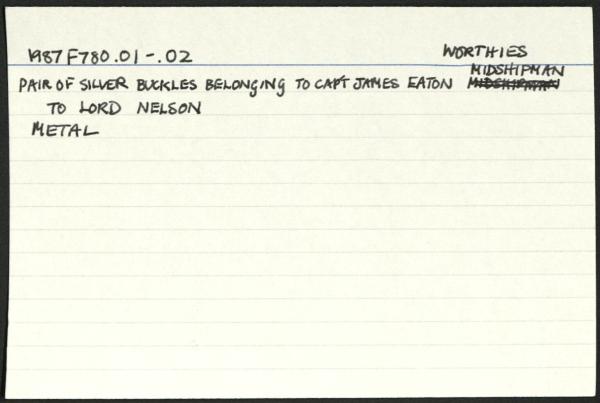 1987F780.01-.02
WORTHIES
MIDSHIPMAN
PAIR OF SILVER BUCKLES BELONGING TO CAPT JAMES EATON
TO LORD NELSON
METAL